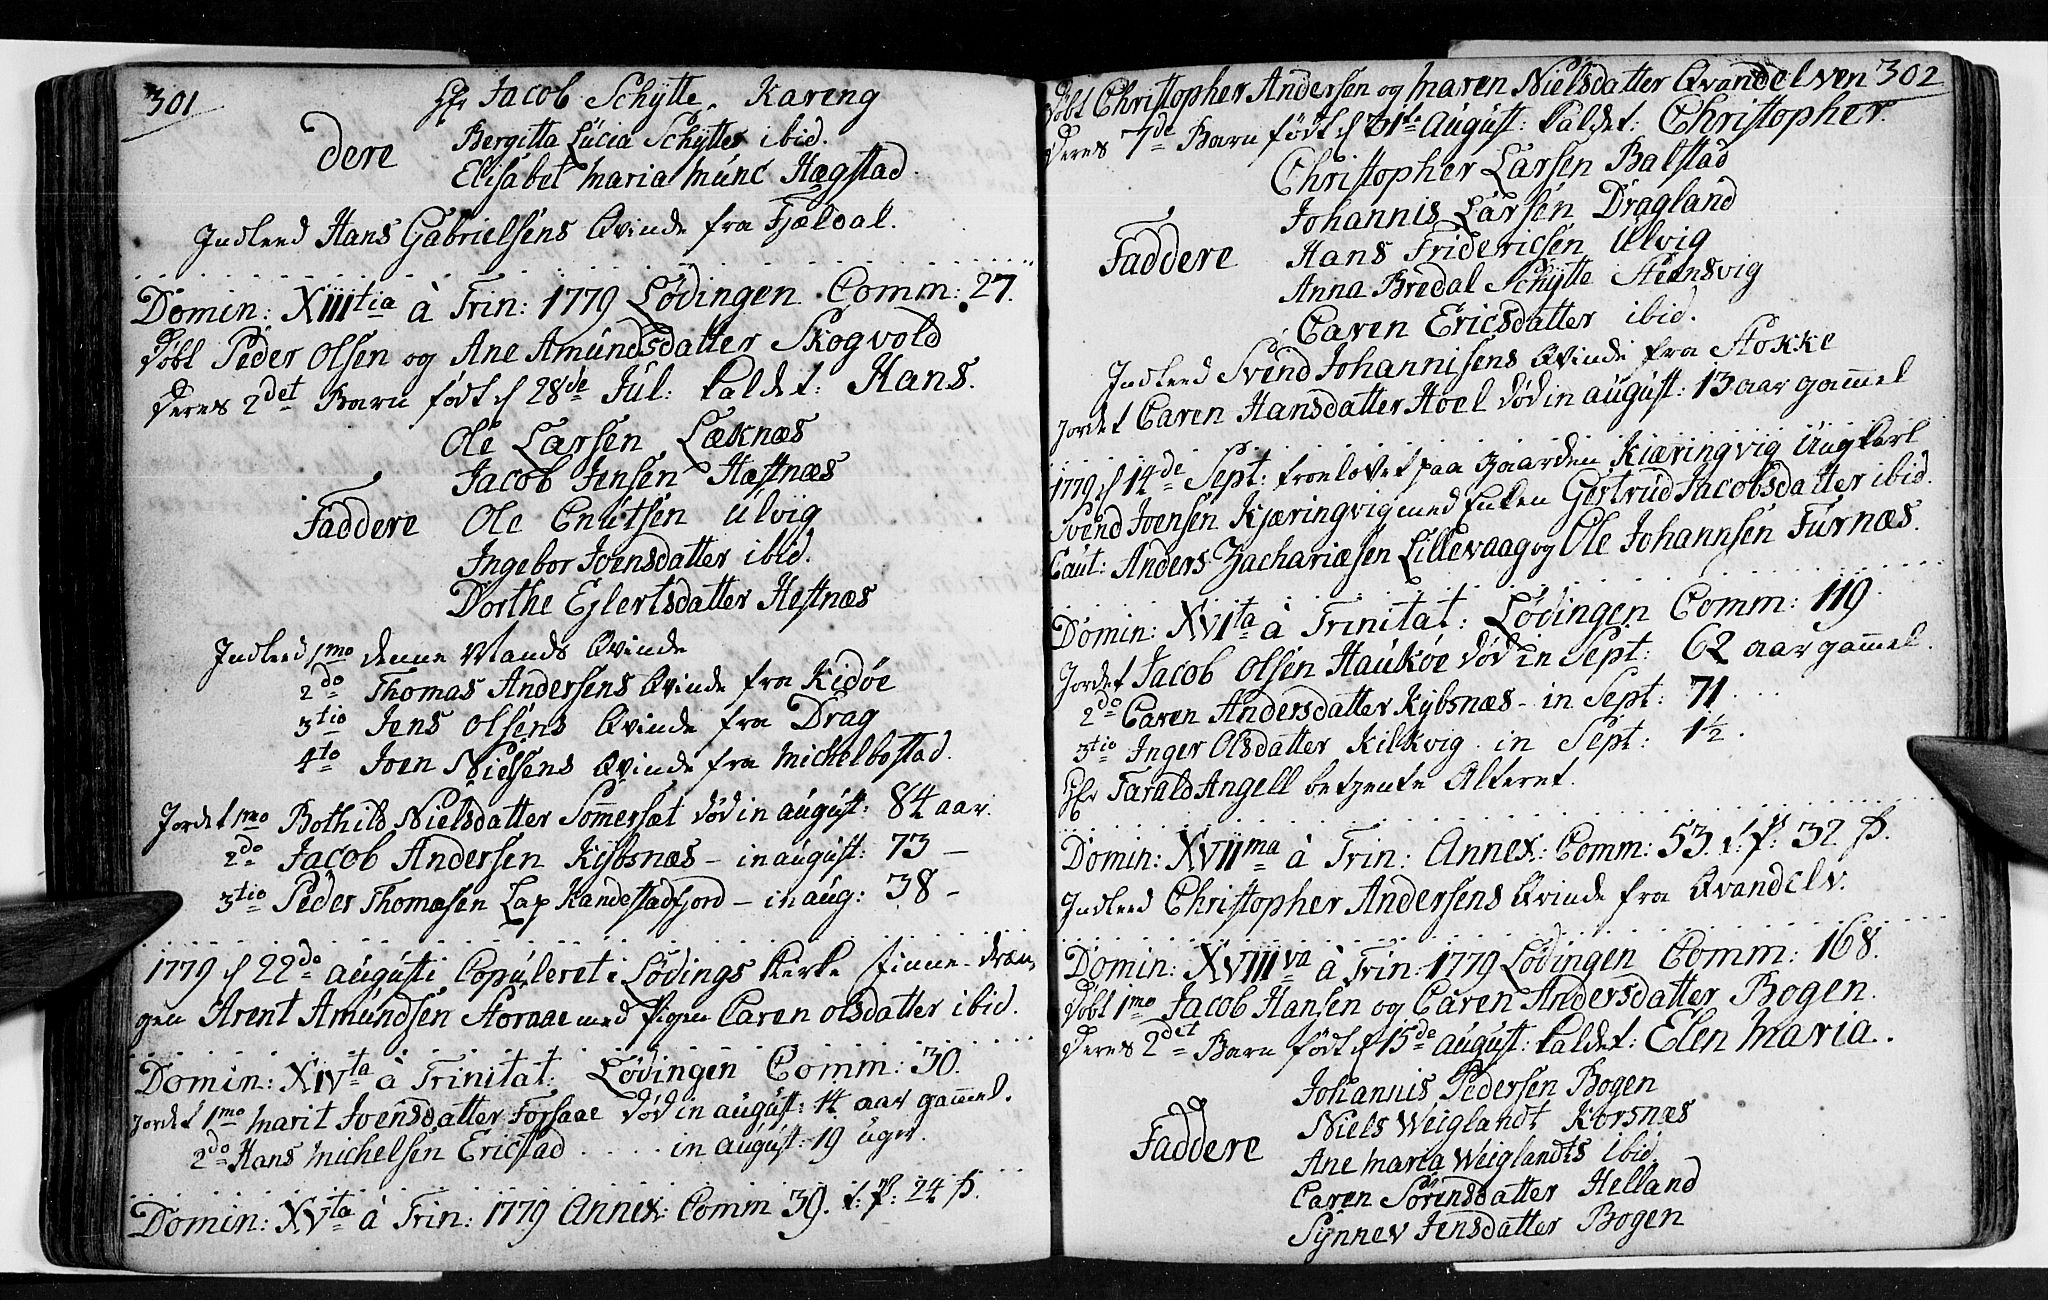 301
Hr Jacob Schytte, Kareng
dere
Bergitta Lucia Schyttes ibid.
Elisabet Maria Munc Hægstad.
Indleed Hans Gabrielsens Qvinde fra Fjældal.
Domin: XIIItia à Trin: 1779 Lødingen Comm: 27.
Døbt Peder Olsen og Ane Amundsdatter Skogvold
Deres 2det Barn født d 28de Jul: kaldet: Hans.
Ole Larsen Læknæs
Jacob Jensen Hæstnæs
Faddere Ole Cnutsen Ulvig
Ingebor Joensdatter ibid.
Dorthe Ejlertsdatter Hestnæs
Indleed 1mo denne Mands Qvinde
2do Thomas Andersens Qvinde fra Kidøe
3tio Jens Olsens Qvinde fra Drag
4to Joen Nielsens Qvinde fra Michelbostad.
Jordet 1mo Bothild Nielsdatter Sommersæt død in august: 84 aar.
2do Jacob Andersen Kjøbsnæs – in august: 73 –
3tio Peder Thomæsen Lap Kandestadfjord – in aug: 38 –
1779 d 22do augusti Copuleret i Lødings Kerke Finne-dræn-
gen Arent Amundsen Storaae med Pigen Caren Olsdatter ibid.
Domin: XIVta à Trinitat: Lødingen Comm: 30.
Jordet 1mo Marit Joensdatter Forsaae død in august: 14 aar gammel.
2do Hans Michelsen Ericstad . . . . . in august: 19 uger.
Domin: XVta à Trin: 1779 Annex: Comm 39. f: P: 24 ß.
Døbt Christopher Andersen og Maren Nielsdatter Qvandelven 302
Deres 7de Barn født d 31te August: kaldet: Christopher.
Christopher Larsen Balstad
Johannis Larsen Dragland
Faddere Hans Fridericsen Ulvig
Anna Bredal Schytte Steensvig
Caren Ericsdatter ibid.
Indleed Svend Johannisens Qvinde fra Stokke
Jordet Caren Hansdatter Hoel død in august: 13 aar gammel
1779 d 14de Sept: troelovet paa Gaarden Kiæringvig Ungkarl
Svend Joensen Kjæringvig med Enken Gertrud Jacobsdatter ibid.
Caut: Anders Zachariæsen Lillevaag og Ole Johannsen Furnæs.
Domin: XVIta à Trinitat: Lødingen Comm: 119.
Jordet Jacob Olsen Haukøe død in Sept: 62 aar gammel.
2do Caren Andersdatter Kybsnæs – in Sept: 71 . . . .
3tio Inger Olsdatter Kilkvig . in Sept: 1½ .
Hr Tarald Angell betjente Alteret.
Domin: XVIIma à Trin: Annex: Comm: 53. f: P: 32 ß.
Indleed Christopher Andersens Qvinde fra Qvandelv.
Domin: XVIIIva à Trin: 1779 Lødingen Comm: 168.
Døbt 1mo Jacob Hansen og Caren Andersdatter Bogen.
Deres 2det Barn født d 15de august: kaldet: Elen Maria.
Johannis Pedersen Bogen
Niels Weiglandt Korsnæs
Faddere Ane Maria Weiglandts ibid.
Caren Sørensdatter Helland
Synnev Jensdatter Bogen